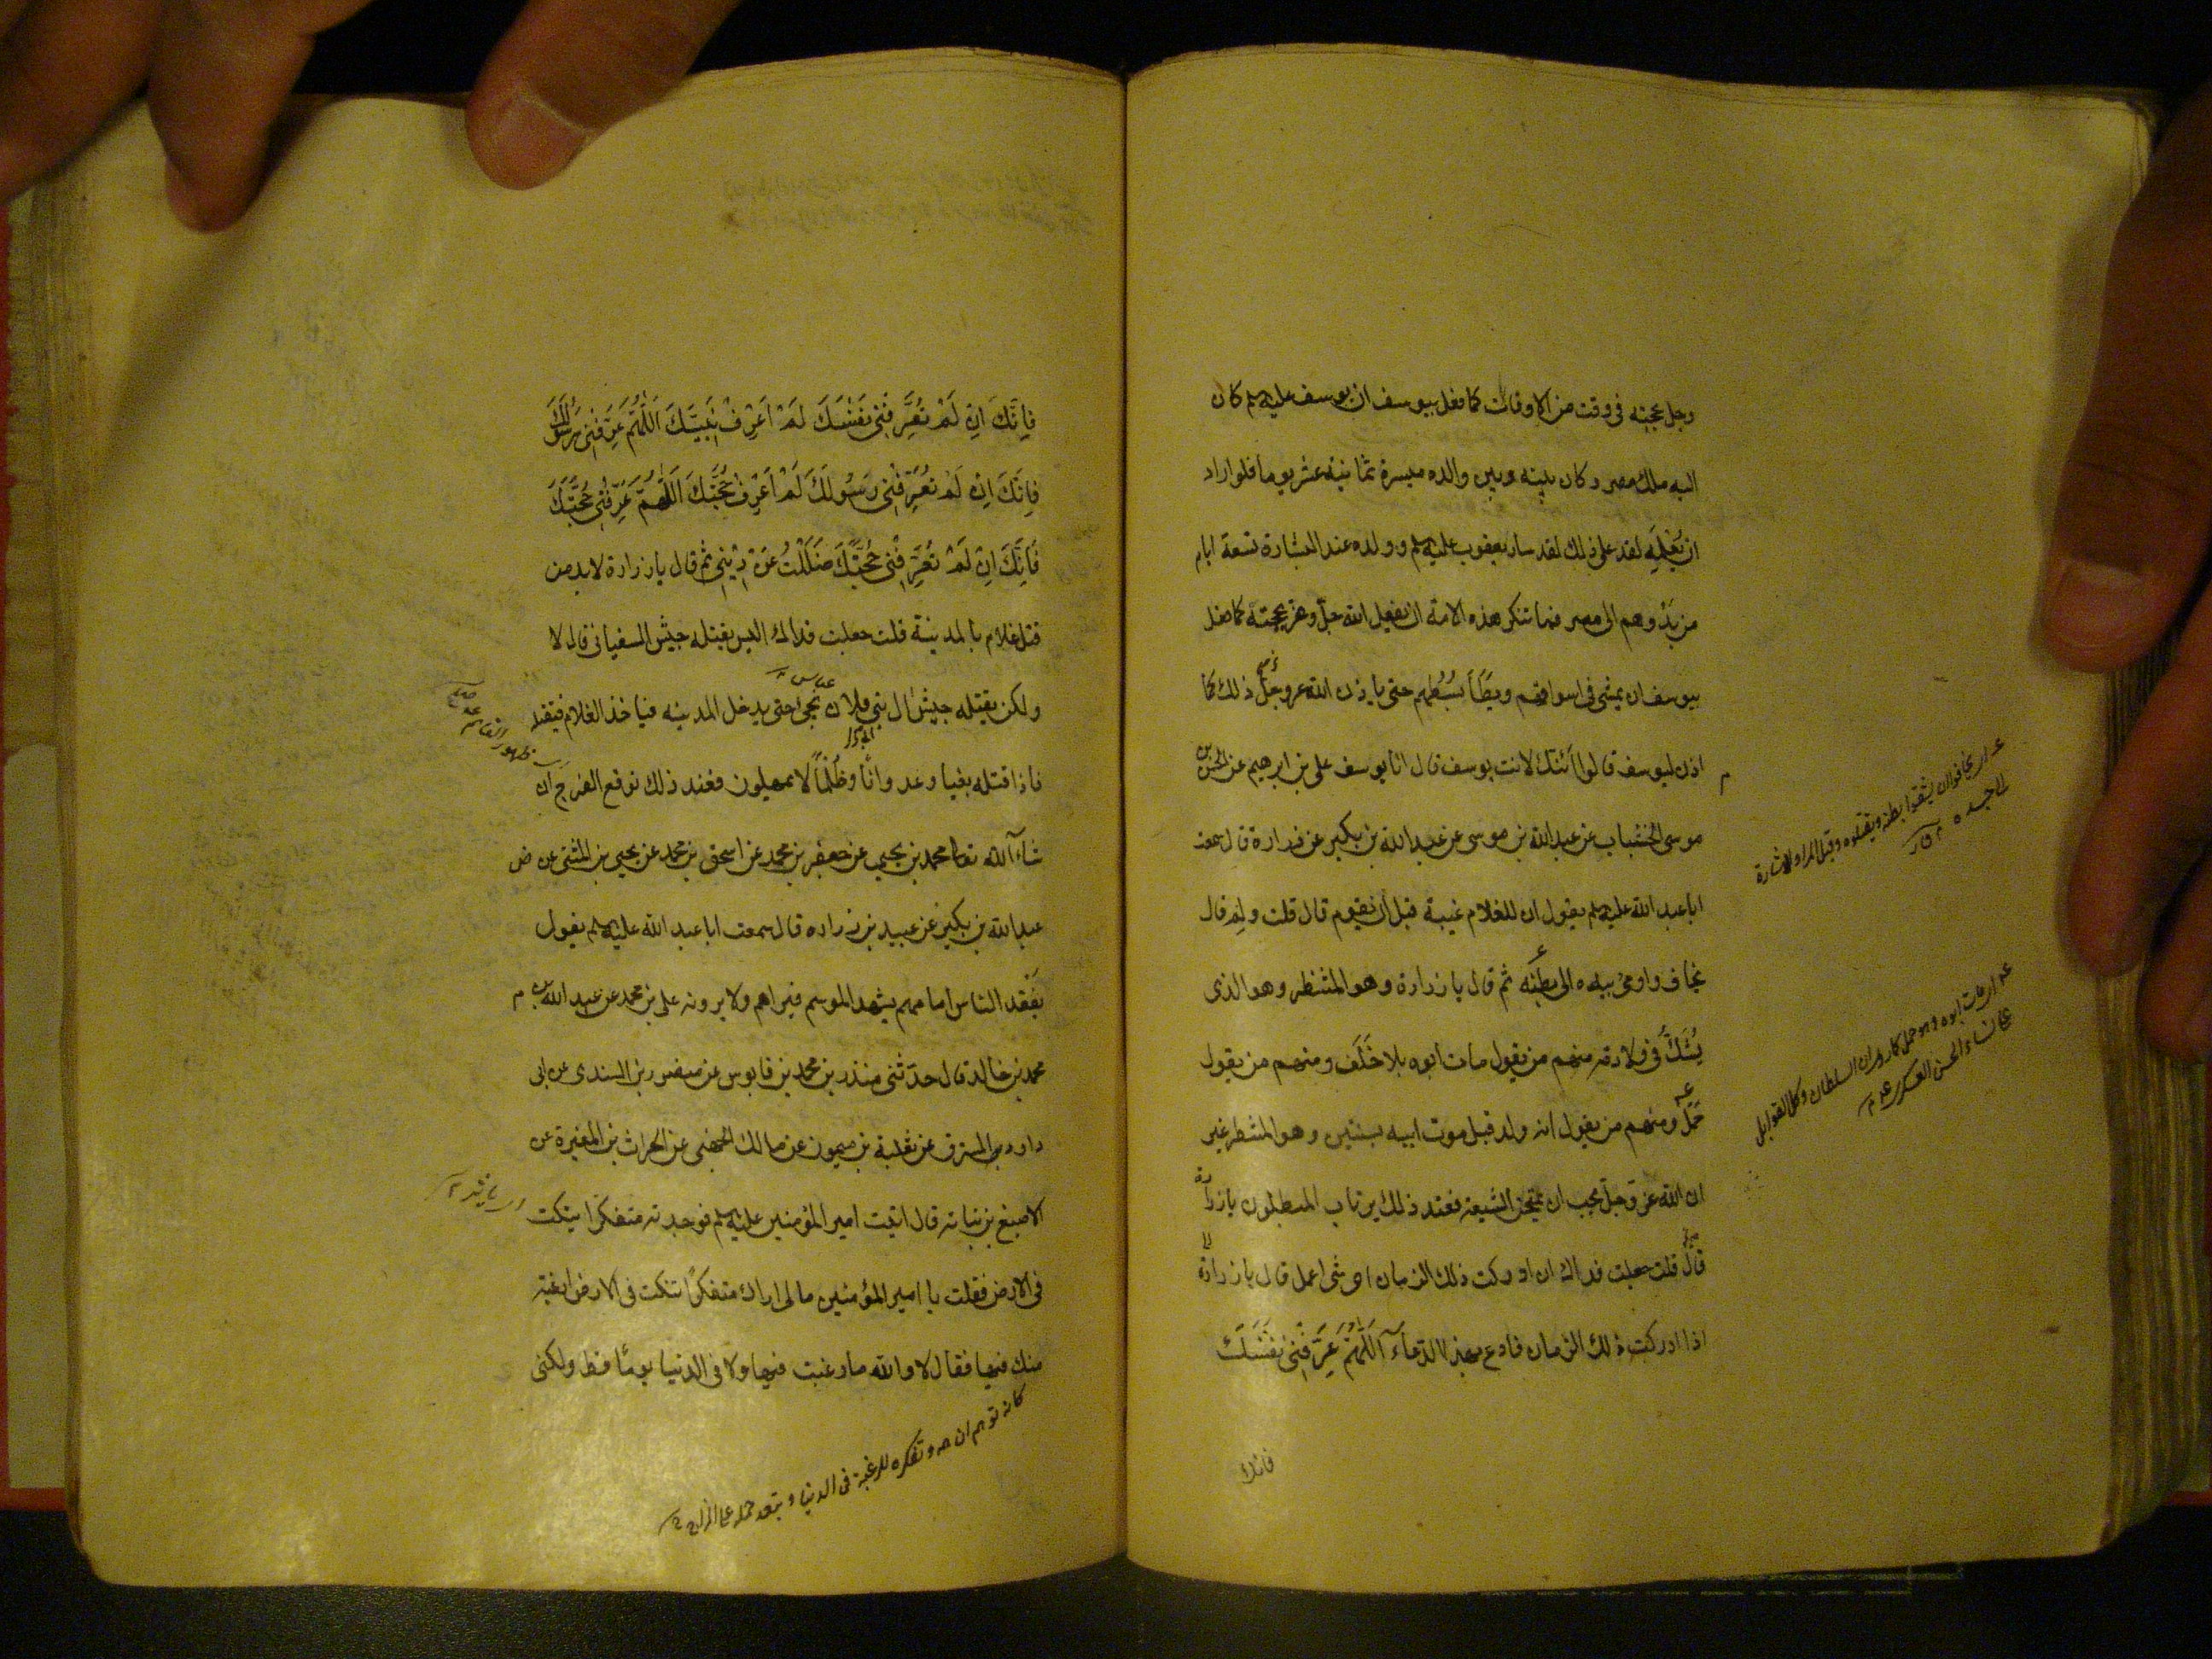 رجل بحجته فى وقت من الاوقات كما فعل بيوسف ان يوسف عليه السلم كان
اليه ملك مصر وكان بينه وبين والده مسيرة ثمانية عشر يوما فلو اراد
ان يعلمه لقدر على ذلك لقد سار يعقوب عليه السلم وولده عند البشارة تسعة ايام
من بدوهم الى مصر فما تنكر هذه الامة ان يفعل الله جل وعز بحجته كما فعل
بيوسف ان يمشى فى اسواقهم ويطأ بسطهم حتى ياذن الله عز وجل ذلك كما
اذن ليوسف قالوا أئنك لانت يوسف قال انا يوسف على بن ابرهيم عن الحسن بن
موسى الخشاب عن عبد الله بن موسى عن عبد الله بن بكير عن زرارة قال سمعت
ابا عبد الله عليه السلم يقول ان للغلام غيبة قبل ان يقوم قال قلت ولم قال
يخاف واومئ بيده الى بطنه ثم قال يا زرارة وهو المنتظر وهو الذى
يُشَكُّ فى ولادته منهم من يقول مات ابوه بلا خَلَف ومنهم من يقول
حَمْل ومنهم من يقول انه ولد قبل موت ابيه بسنتين وهو المنتظر غير
ان الله عز وجل يحب ان يمتحن الشيعة فعند ذلك يرتاب المبطلون يا زرارة
قال قلت جعلت فداك ان ادركت ذلك الزمان اى شى اعمل قال يا زرارة
اذا ادركت ذلك الزمان فادع بهذا الدعاء اَللّٰهُمَّ عَرِّفْنِى نَفْسَكَ
فانك
اى يخاف ان يشقوا بطنه ويقتلوه وقيل المراد الاشارة
الى جسده
اى مات ابوه وهو حمل كما روى ان السلطان وكل القوابل
على نساء الحسن العسكرى
فَاِنَّكَ اِنْ لَمْ تُعَرِّفْنِى نَفْسَكَ لَمْ اَعْرِفْ نَبِيَّكَ اَللّٰهُمَّ عَرِّفْنِى رَسُولَكَ
فَاِنَّكَ اِنْ لَمْ تُعَرِّفْنِى رَسُولَكَ لَمْ اَعْرِفْ حُجَّتَكَ اَللّٰهُمَّ عَرِّفْنِى حُجَّتَكَ
فَاِنَّكَ اِنْ لَمْ تُعَرِّفْنِى حُجَّتَكَ ضَلَلْتُ عَنْ دِيْنِى ثم قال يا زرارة لا بد من
قتل غلام بالمدينة قلت جعلت فداك اليس يقتله جيش السفيانى قال لا
ولكن يقتله جيش ال بنى فلان يجئ حتى يدخل المدينه فياخذ الغلام فيقتله
فاذا قتله بغيا وعدوانا وظلما لا يمهلون فعند ذلك توقع الفرج ان
شاء الله تعا محمد بن يحيى عن جعفر بن محمد عن اسحق بن محمد عن يحيى بن المثنى عن
عبد الله بن بكير عن عبيد بن زراره قال سمعت ابا عبد الله عليه السلم يقول
يفقد الناس امامهم يشهد الموسم فيراهم ولا يرونه على بن محمد عن عبد الله بن
محمد بن خالد قال حدثنى منذر بن محمد بن قابوس عن منصور بن السندى عن ابى
داود المسترق عن ثعلبة بن ميمون عن مالك الجهنى عن الحرث بن المغيرة عن
الاصبغ بن نباته قال اتيت امير المؤمنين عليه السلم فوجدته متفكرا ينكت
فى الارض فقلت يا امير المؤمنين مالى اراك متفكرا تنكت فى الارض ارغبة
منك فيها فقال لا والله ما رغبت فيها ولا فى الدنيا يوما قط ولكنى
كانه توهم ان تفكره للرغبة فى الدنيا